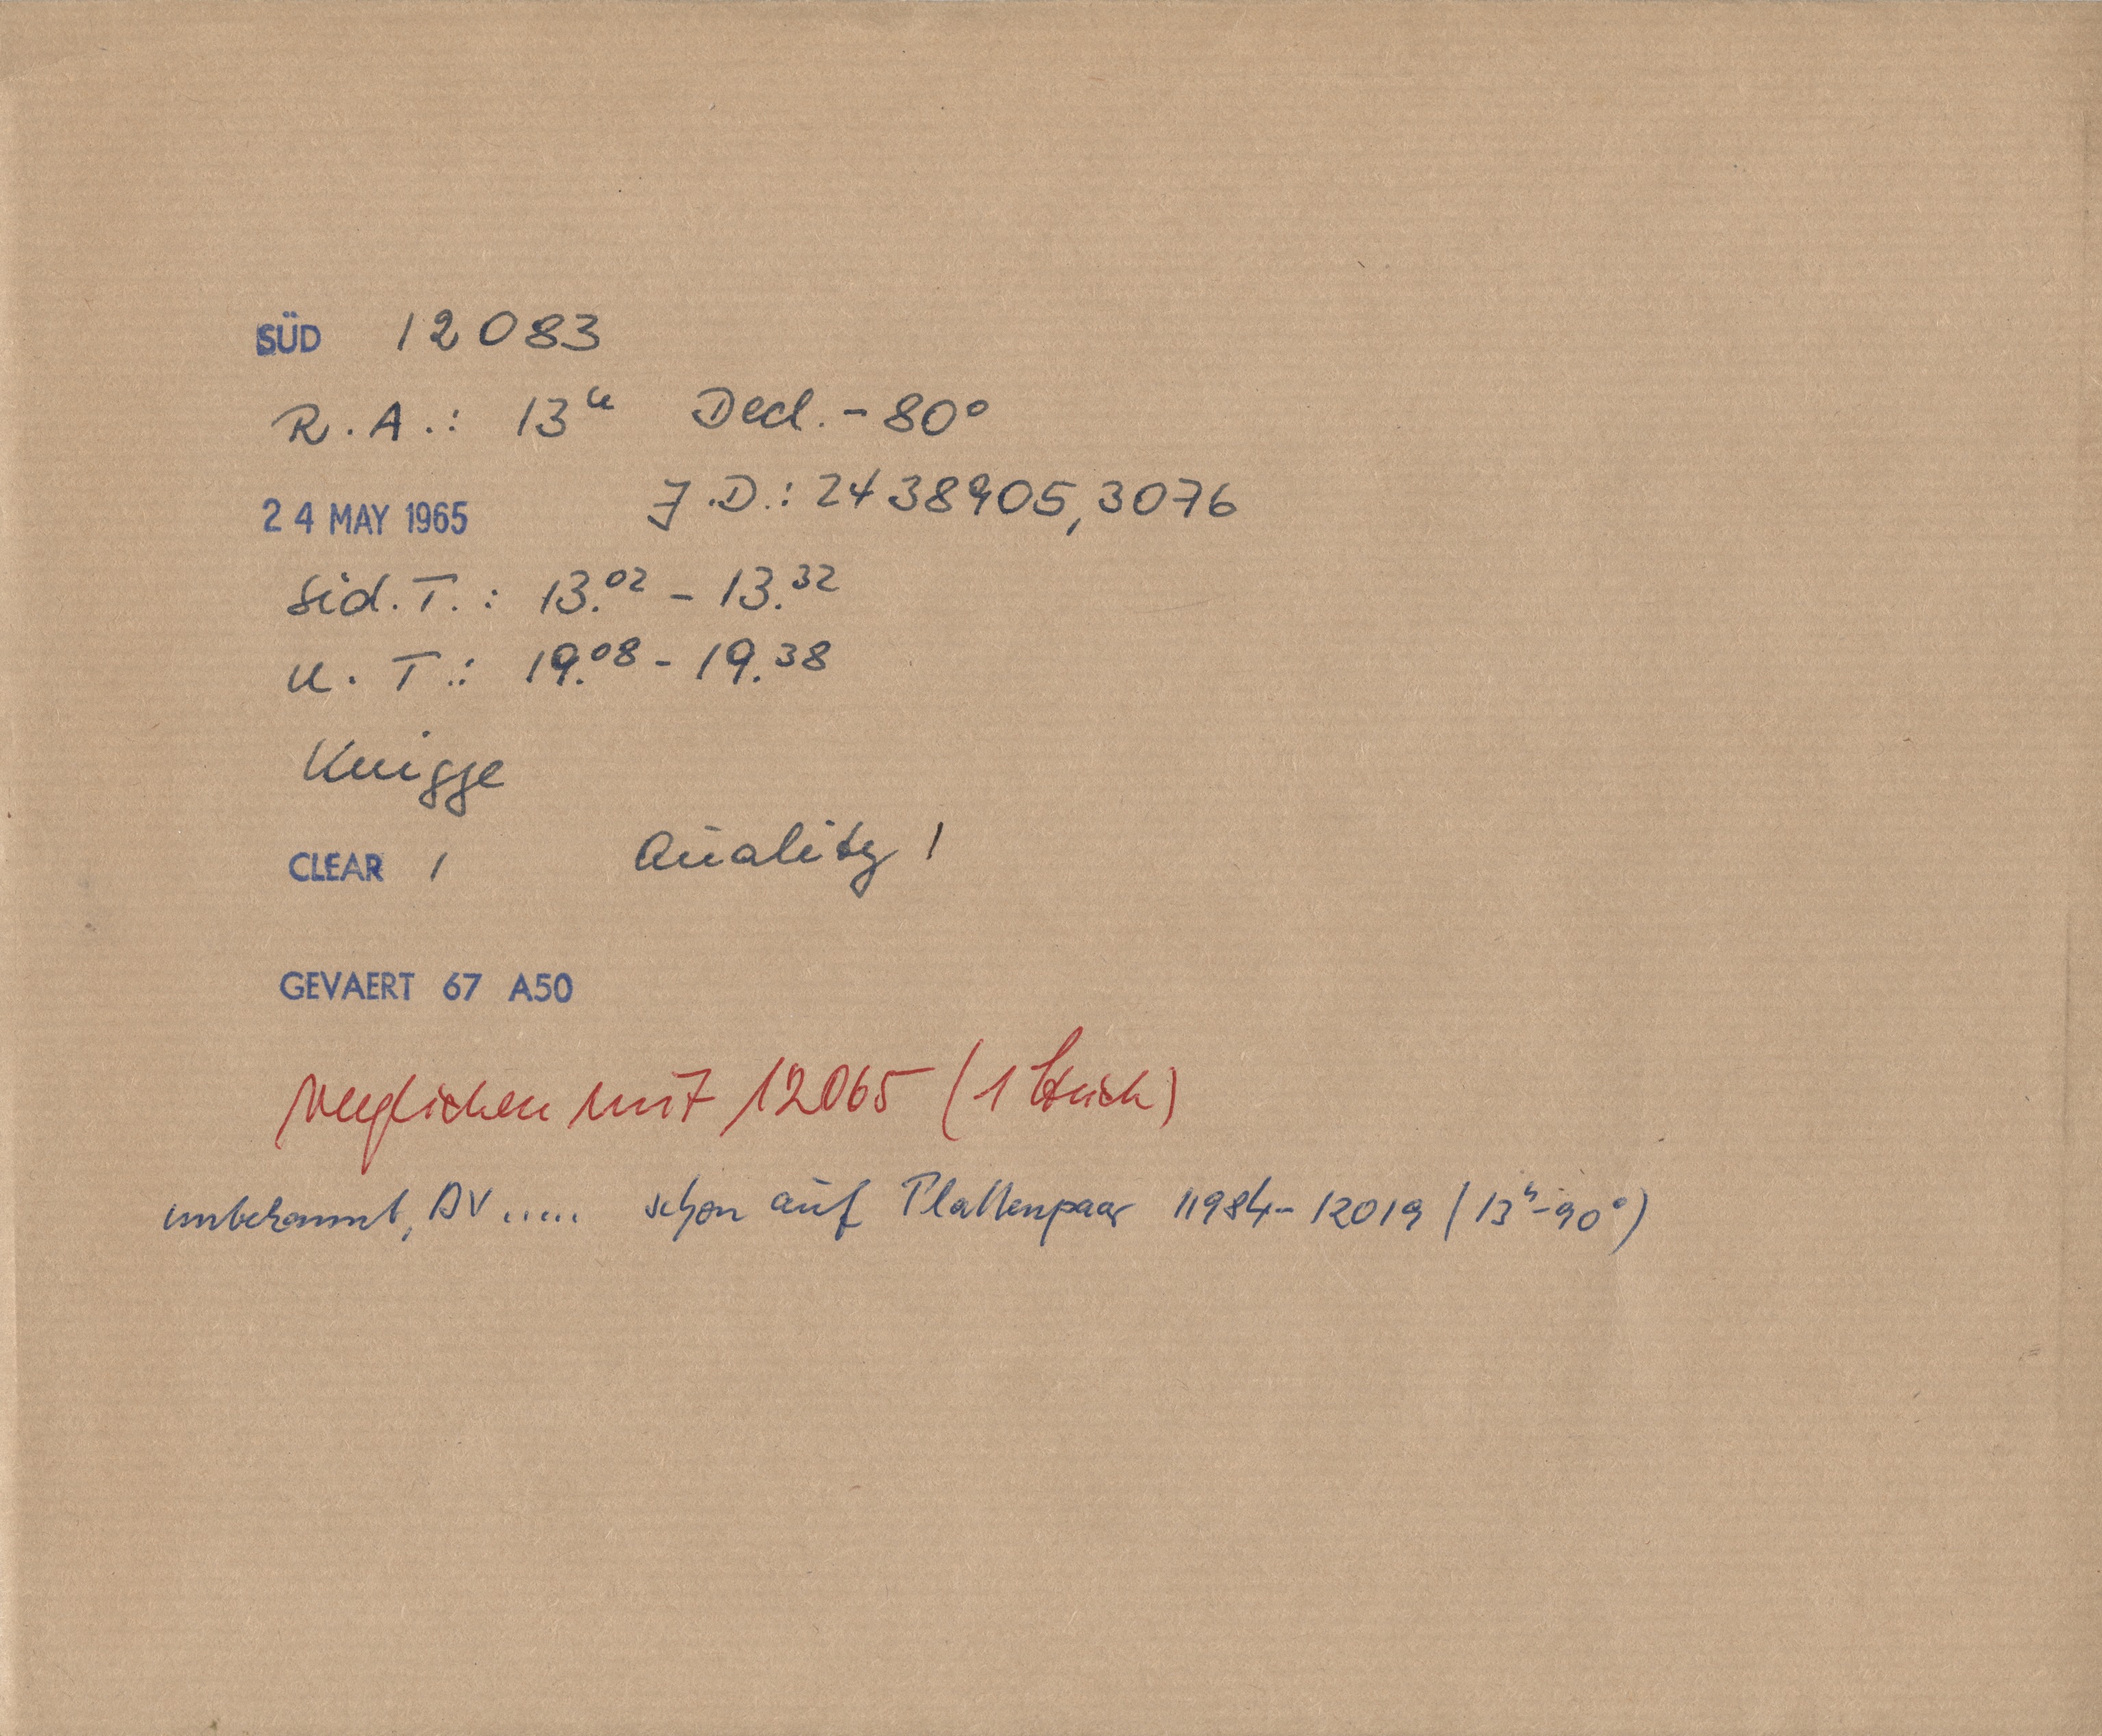 SÜD 12083
R.A.: 13ʰ Decl. - 80°
24 MAY 1965 J.D.: 2438905,3076
Sid.T.: 13.⁰² - 13.³²
U.T.: 19.⁰⁸ - 19.³⁸
Knigge
CLEAR 1 Quality 1
GEVAERT 67 A50
verglichen mit 12065 (1 Stück)
unbekannt, BV ..... schon auf Plattenpaar 11984 - 12019 (13ʰ -90°)